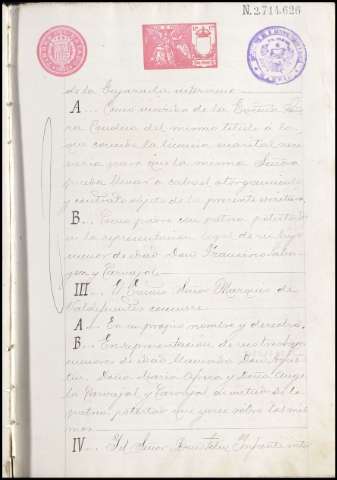 N. 2.714.626
de la Enjarada interviene
A... Como marido de la Excma Se
ra Condesa del mismo título a la
que concede la licencia marital nece
saria para que la misma Señora
pueda llevar a cabo el otorgamiento
y contrato objeto de la presente escritura
B... Como padre con patria potestad
a la representación legal de su hijo
menor de edad Don Francisco
y Carvajal
III... El Excmo Señor Marqués de
Valdefuentes concurre
A... En su propio nombre y derecho.
B... En representación de sus hijos
menores de edad llamados Don
Doña María y Doña
la Carvajal y Carvajal en virtud de la
patria potestad que ejerce sobre los mis
mos
IV... El Señor Don Felix Infante